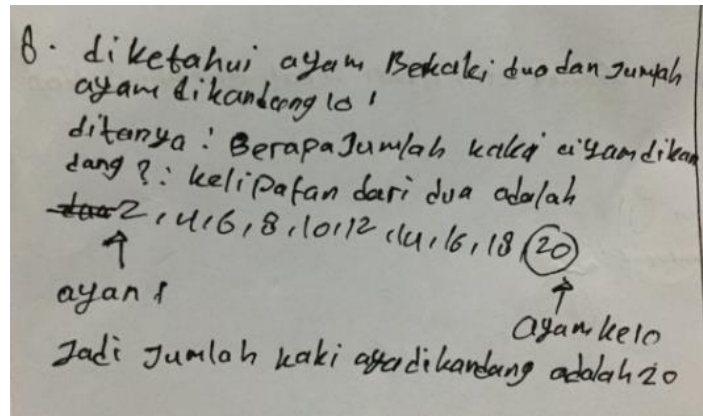 8. diketahui ayam Berkaki duo dan Jumlah
ayam dikandang 10 !
ditanya : Berapa Jumlah kaki ayam dikan
dang ? : kelipatan dari dua adalah
2, 4, 6, 8, 10, 12, 14, 16, 18, 20
ayam 1
ayam ke 10
Jadi Jumlah kaki aya dikandang adalah 20